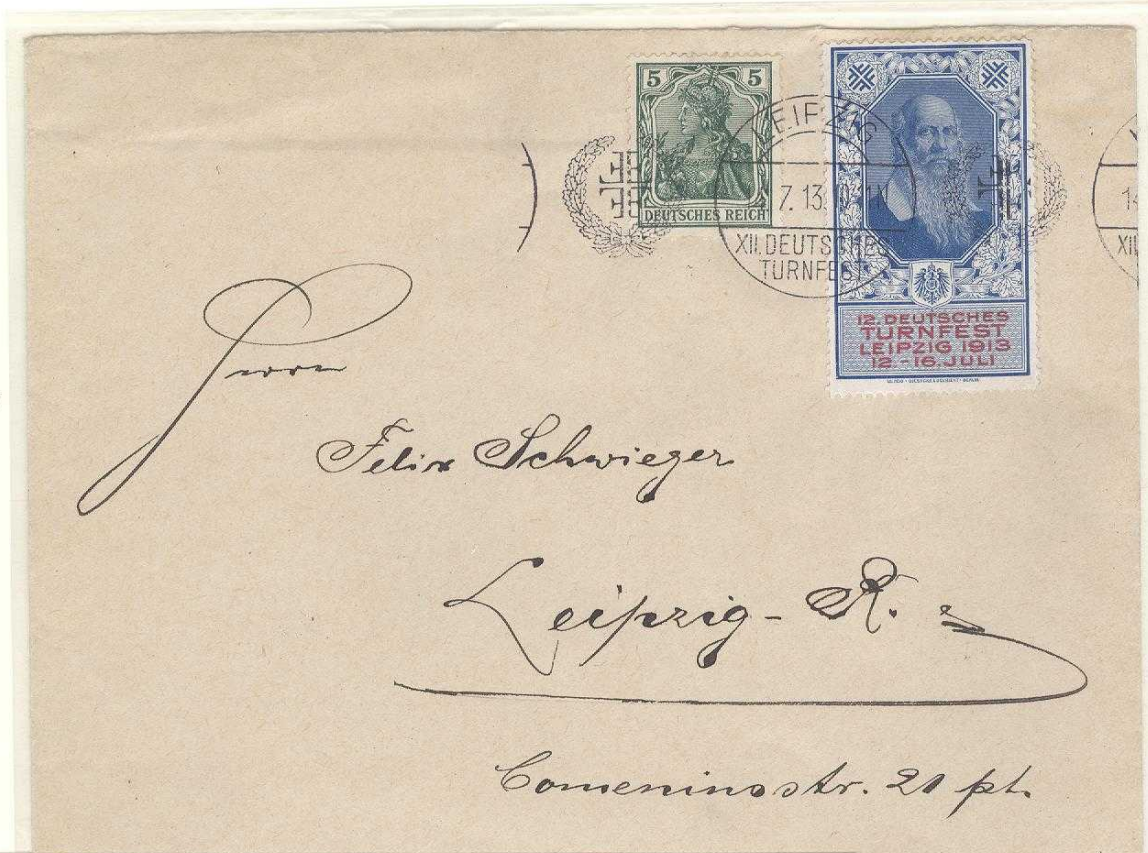 5 5
DEUTSCHES REICH
LEIPZIG
7. 13. 10-11
XII. DEUTSCHES
TURNFEST
12. DEUTSCHES
TURNFEST
LEIPZIG 1913
12.-16. JULI
14
XII
Herrn
Felix Schwieger
Leipzig-R.
Comeniusstr. 21 pt.